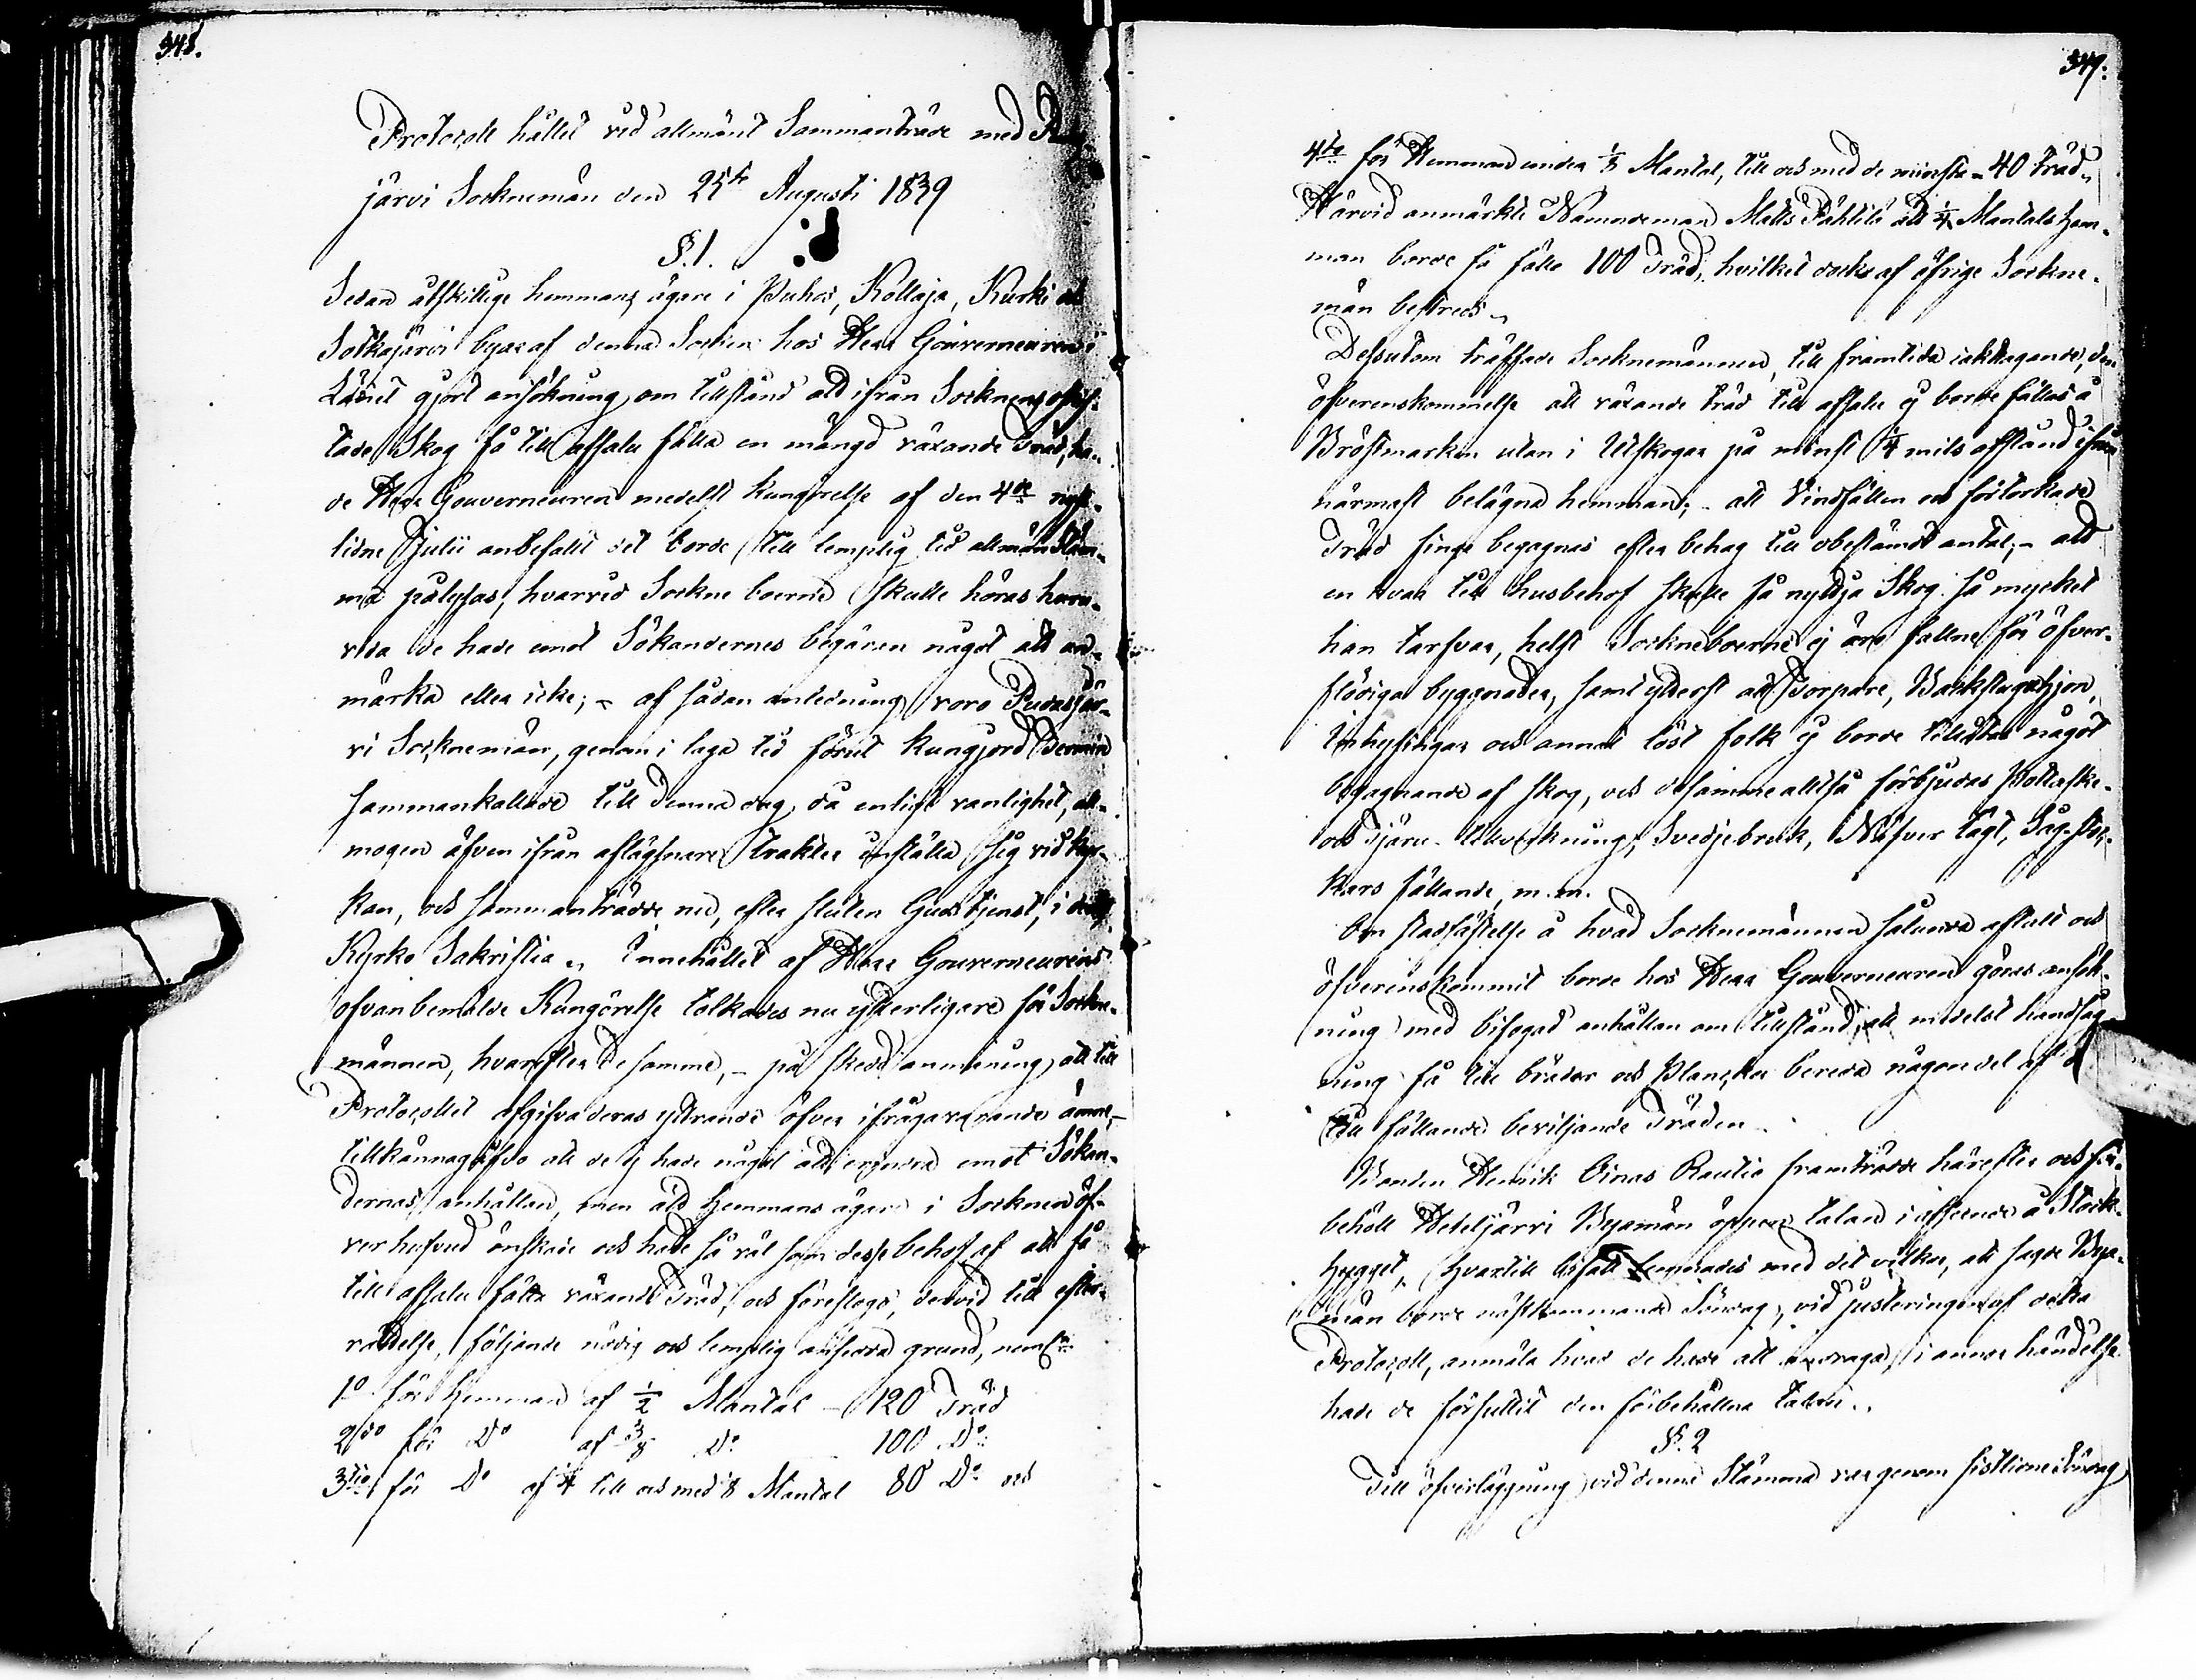 348.
Protocoll hållet vid allmänt Sammanträde med
järvi Socknemän den 25te Augusti 1839
§. 1.
Sedan åtskillige hemmans ägare i Puhos, Kollaja, Kurki och
Sotkajärvi byar af denna Socken hos Herr Gouverneuren i
Länet gjort ansökning om tillstånd att ifrån Socknens oskif-
tade Skog få till afsalu fälla en mängd växande Träd, ha-
de Herr Gouverneuren medelst Kungörelse af den 4de nyst-
lidne Julii anbefallt det borde till lemplig tid allmän Stäm-
ma pålysas, hvarvid Sockneboerne skulle höras huru-
vida de hade emot Sökandernes begäran något att an-
märka eller icke; - af sådan anledning voro Pudasjär-
vi Socknemän, genom i laga tid förut kungjord Termin
sammankallade till denna dag, då enligt vanlighet, all-
mogen äfven ifrån aflägsnare trakter inställa sig vid Kyr-
kan, och sammanträdde nu, efter sluten Gudstjenst, i
Kyrko Sakristia. Innehållet af Herr Gouverneurens
ofvanbemälde Kungörelse tolkades nu ytterligare för Sockne-
männen, hvarefter de samme, - på skedd anmaning att till
Protocollet afgifva deras yttrande öfver ifrågavarande ämne, -
tillkännagåfvo att de ej hade något att erindra emot Sökan-
dernas anhållan, men att Hemmans ägare i Socknen öf-
verhufvud önskade och hade så väl som desse behof af att få
till afsalu fälla växande Träd, och föreslogs, dervid till efter-
rättelse, följande nödig och lemplig ansedd grund, neml:n
1o för Hemman af 1/2 Mantal - 120 Träd
2do för Do af 3/8 Do 100 Do
3tio för Do af 1/4 till och med 1/8 Mantal 80 Do och
349.
4to för Hemman under 1/8 Mantal, till och med de minsta - 40 träd.
Härvid anmärkte Nämndeman Matts Pähtilä att 1/4 Mantals hem-
man borde få fälla 100 Träd, hvilket dock af öfrige Sockne-
män bestreds.
Dessutom träffade Socknemännen, till framtida iakttagande, den
öfverenskommelse att växande träd till afsalu ej borde fällas å
Bröstmarken utan i Utskogar på minst 1/4 mils afstånd ifrån
närmast belägna hemman; - att Vindfällen och förtorkade
Träd finge begagnas efter behag till obestämdt antal; - att
en hvar till husbehof skulle få nyttja Skog så mycket
han tarfvar, helst Sockneboerne ej äro fallne för öfver-
flödiga byggnader, samt ytterst att Torpare, Backstuguhjon,
Inhysingar och annat löst folk ej borde tillåtas något
begagnande af skog, och desamme alltså förbjudas Pottaske-
och Tjäru-tillverkning, Svedjebruk, Näfver tägt, Sågstoc-
kars fällande, m. m.
Om stadfästelse å hvad Socknemännen sålunda aftalt och
öfverenskommit borde hos Herr Gouverneuren göras ansök-
ning med bifogad anhållan om tillstånd, att medelst handsåg-
ning få till bräder och Planckor bereda någon del af de
till fällande beviljande Träden.
Bonden Henrik Oinas Rautio framträdde härefter och för-
behöll Hetejärvi Byamän öppen talan i afseende å Stock-
hygget, hvartill bifall lemnades med det vilkor, att sagde Bya-
män borde nästkommande Söndag, vid justeringen af detta
Protocoll, anmäla hvad de hade att andraga, i annor händelse
hade de försuttit den förbehållna talan.
§. 2
Till öfverläggning vid denna Stämma var genom sistlidne Söndag